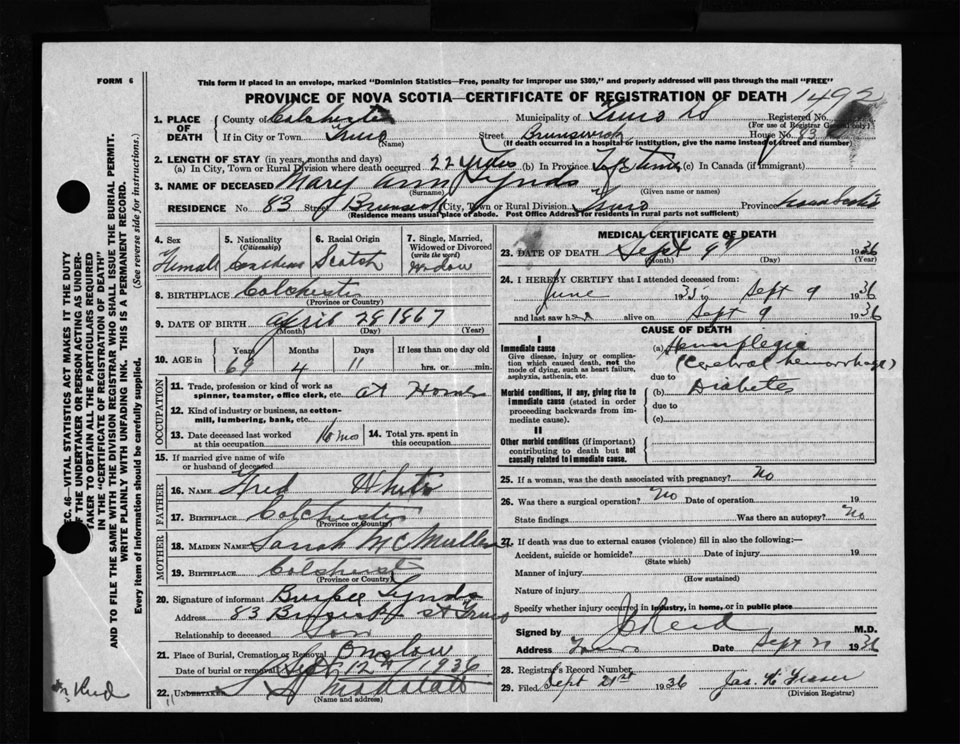 FORM 6
This form if placed in an envelope, marked "Dominion Statistics—Free, penalty for improper use $300," and properly addressed will pass through the mail "FREE"
PROVINCE OF NOVA SCOTIA—CERTIFICATE OF REGISTRATION OF DEATH
1. PLACE OF DEATH
County of Colchester Municipality of Truro Registered No.
(For use of Registrar General only)
If in City or Town Truro Street Brunswick House No. 83
(Name) (If death occurred in a hospital or institution, give the name instead of street and number)
2. LENGTH OF STAY (in years, months and days)
(a) In City, Town or Rural Division where death occurred 22 yrs (b) In Province Life time (c) In Canada (if immigrant)
3. NAME OF DECEASED Mary Ann Lynds
(Surname) (Given name or names)
RESIDENCE No. 83 Street Brunswick City, Town or Rural Division Truro Province Nova Scotia
(Residence means usual place of abode. Post Office Address for residents in rural parts not sufficient)
4. Sex Female
5. Nationality (Citizenship) Canadian
6. Racial Origin Scotch
7. Single, Married, Widowed or Divorced (write the word) Widow
8. BIRTHPLACE Colchester
(Province or Country)
9. DATE OF BIRTH April 28 1867
(Month) (Day) (Year)
10. AGE in Years Months Days If less than one day old
69 4 11 hrs. or min.
OCCUPATION
11. Trade, profession or kind of work as spinner, teamster, office clerk, etc. at Home
12. Kind of industry or business, as cotton-mill, lumbering, bank, etc.
13. Date deceased last worked at this occupation mo
14. Total yrs. spent in this occupation
15. If married give name of wife or husband of deceased
FATHER
16. NAME Fred White
17. BIRTHPLACE Colchester
(Province or Country)
MOTHER
18. MAIDEN NAME Sarah McMullen
19. BIRTHPLACE Colchester
(Province or Country)
20. Signature of informant Burpee Lynds
Address 83 Brunswick St Truro
Relationship to deceased Son
21. Place of Burial, Cremation or Removal Onslow
Date of burial or removal Sept 12th 1936
22. Undertaker
(Name and address)
MEDICAL CERTIFICATE OF DEATH
23. DATE OF DEATH Sept 9th 1936
(Month) (Day) (Year)
24. I HEREBY CERTIFY that I attended deceased from:
June 1935 to Sept 9 1936
and last saw her alive on Sept 9 1936
CAUSE OF DEATH
I
Immediate cause
Give disease, injury or complication which caused death, not the mode of dying, such as heart failure, asphyxia, asthenia, etc.
(a) Hemiplegia
(Cerebral hemorrhage)
due to
Morbid conditions, if any, giving rise to immediate cause (stated in order proceeding backwards from immediate cause).
(b) Diabetes
due to
(c)
II
Other morbid conditions (if important) contributing to death but not causally related to immediate cause.
25. If a woman, was the death associated with pregnancy? No
26. Was there a surgical operation? No Date of operation 19
State findings Was there an autopsy? No
27. If death was due to external causes (violence) fill in also the following:—
Accident, suicide or homicide? Date of injury 19
(State which)
Manner of injury
(How sustained)
Nature of injury
Specify whether injury occurred in industry, in home, or in public place
Signed by Reid M.D.
Address Truro Date Sept 1936
28. Registrar's Record Number
29. Filed Sept 21st 1936 Jas. W. Fraser
(Division Registrar)
SEC. 46—VITAL STATISTICS ACT MAKES IT THE DUTY
OF THE UNDERTAKER OR PERSON ACTING AS UNDERTAKER TO OBTAIN ALL THE PARTICULARS REQUIRED
IN THE "CERTIFICATE OF REGISTRATION OF DEATH"
AND TO FILE THE SAME WITH THE DIVISION REGISTRAR WHO SHALL ISSUE THE BURIAL PERMIT.
WRITE PLAINLY WITH UNFADING INK. THIS IS A PERMANENT RECORD.
Every item of information should be carefully supplied. (See reverse side for instructions.)